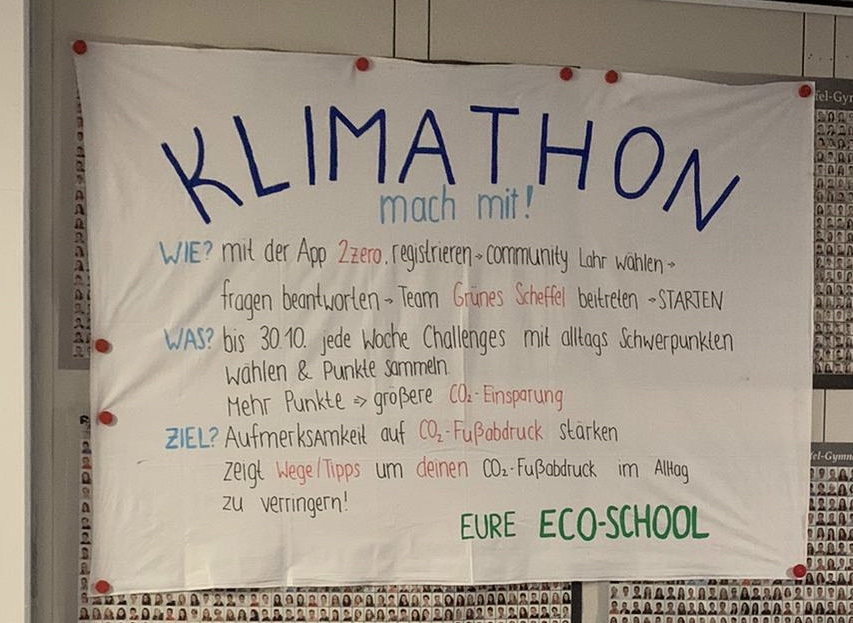 KLIMATHON
mach mit!
WIE? mit der App 2zero. registrieren → community Lahr wählen →
fragen beantworten → Team Grünes Scheffel beitreten → STARTEN
WAS? bis 30.10. jede Woche Challenges mit alltags Schwerpunkten
wählen & Punkte sammeln
Mehr Punkte ⇒ größere CO₂-Einsparung
ZIEL? Aufmerksamkeit auf CO₂-Fußabdruck stärken
zeigt Wege/Tipps um deinen CO₂-Fußabdruck im Alltag
zu verringern!
EURE ECO-SCHOOL